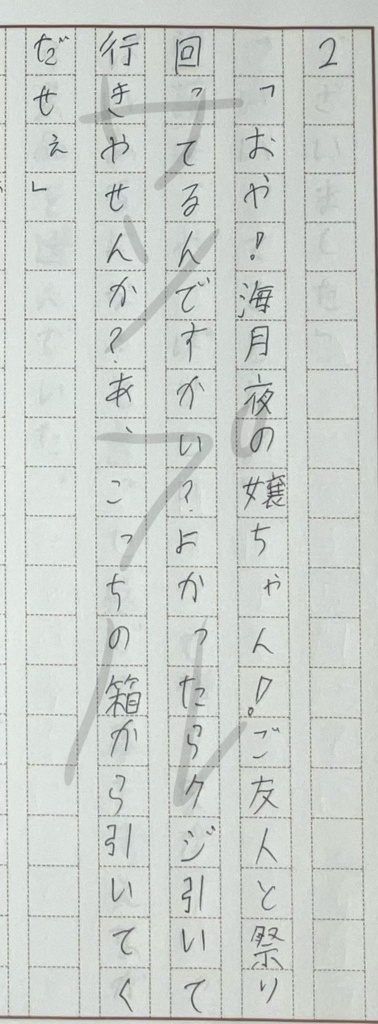 2
「おや！海月夜の嬢ちゃん！ご友人と祭り
回ってるんですかい？よかったらクジ引いて
行きやせんか？あ、こっちの箱から引いてく
だせぇ」
サンプル